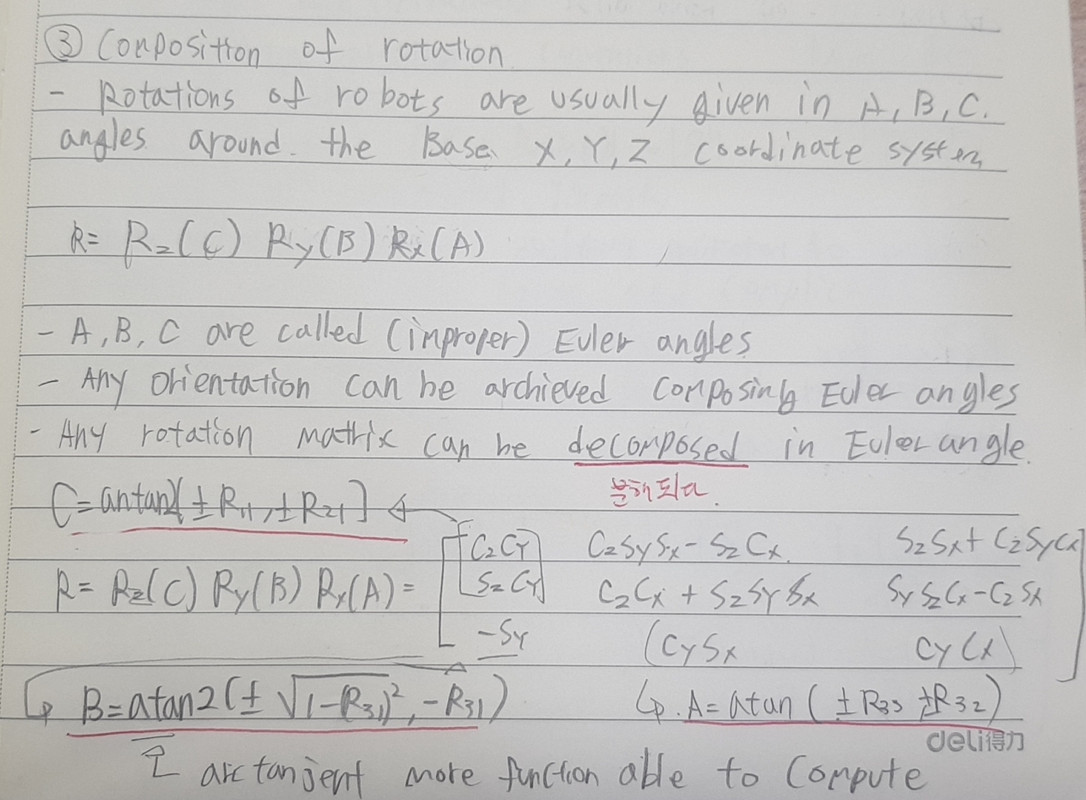 ③ Composition of rotation
- Rotations of robots are usually given in A, B, C.
angles around. the Base X, Y, Z coordinate system
R= Rz(C) Ry(B) Rx(A)
- A, B, C are called (improper) Euler angles
- Any orientation can be archieved composing Euler angles
- Any rotation matrix can be decomposed in Euler angle.
분해되다.
C=antan2[±R11,±R21]
R= Rz(C) Ry(B) Rx(A)=
CzCy CzSySx-SzCx SzSx+CzSyCx
SzCy CzCx+SzSySx SySzCx-CzSx
-Sy (CySx CyCx)
B=atan2(±√1-(R31)², -R31) A=atan(±R33 ±R32)
deli得力
arctanjent more function able to compute